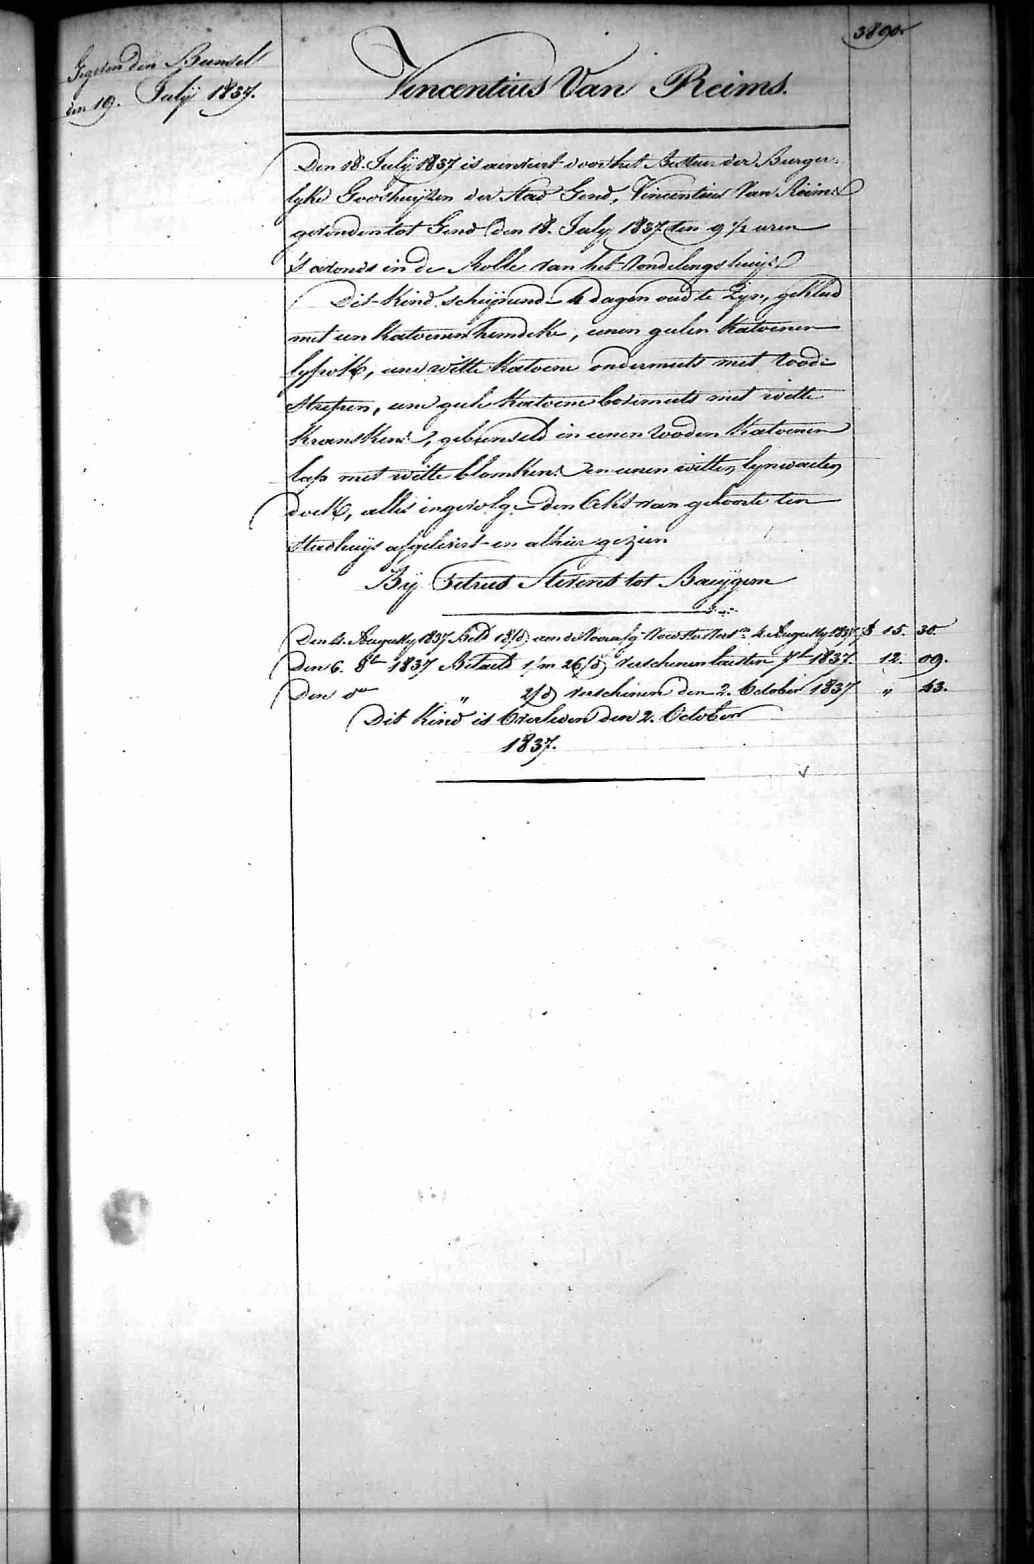 3890
Gegeven den Bunsel
den 19. July 1837.
Vincentius Van Reims.
Den 18. July 1837 is aenveirt door het Bestier der Burger-
lyke Godshuijzen der stad Gend, Vincentius Van Reims
gevonden tot Gend den 18. July 1837 ten 9 1/2 uren
's avonds in de Rolle van het Vondelings huijs
Dit Kind schynend 4 dagen oud te Zyn, gekleed
met een Katoenen hemdeke, eenen geelen Katoenen
lyfrok, eene witte Katoene ondermuts met roode
strepen, eene geele Katoene bovemuts met witte
Kranskens, gebunseld in eenen rooden Katoenen
lap met witte blomkens en eenen witten lynwaeten
doek, alles ingevolge den Akt van geboorte ten
stadhuijs afgelevert en alhier gezien
Bij Petrus Stevens tot Baeijgem
Den 4. Augusty 1837 Betd 18/d aen de Voorsz. 4 Augusty 1837 15. 30.
Den 6. 8br 1837 Betaeld 1/m 26/d verschenen laesten 7br 1837. 12. 09.
Den do " 2/d verschenen den 2. October 1837 " 43.
Dit Kind is Overleden den 2. October
1837.